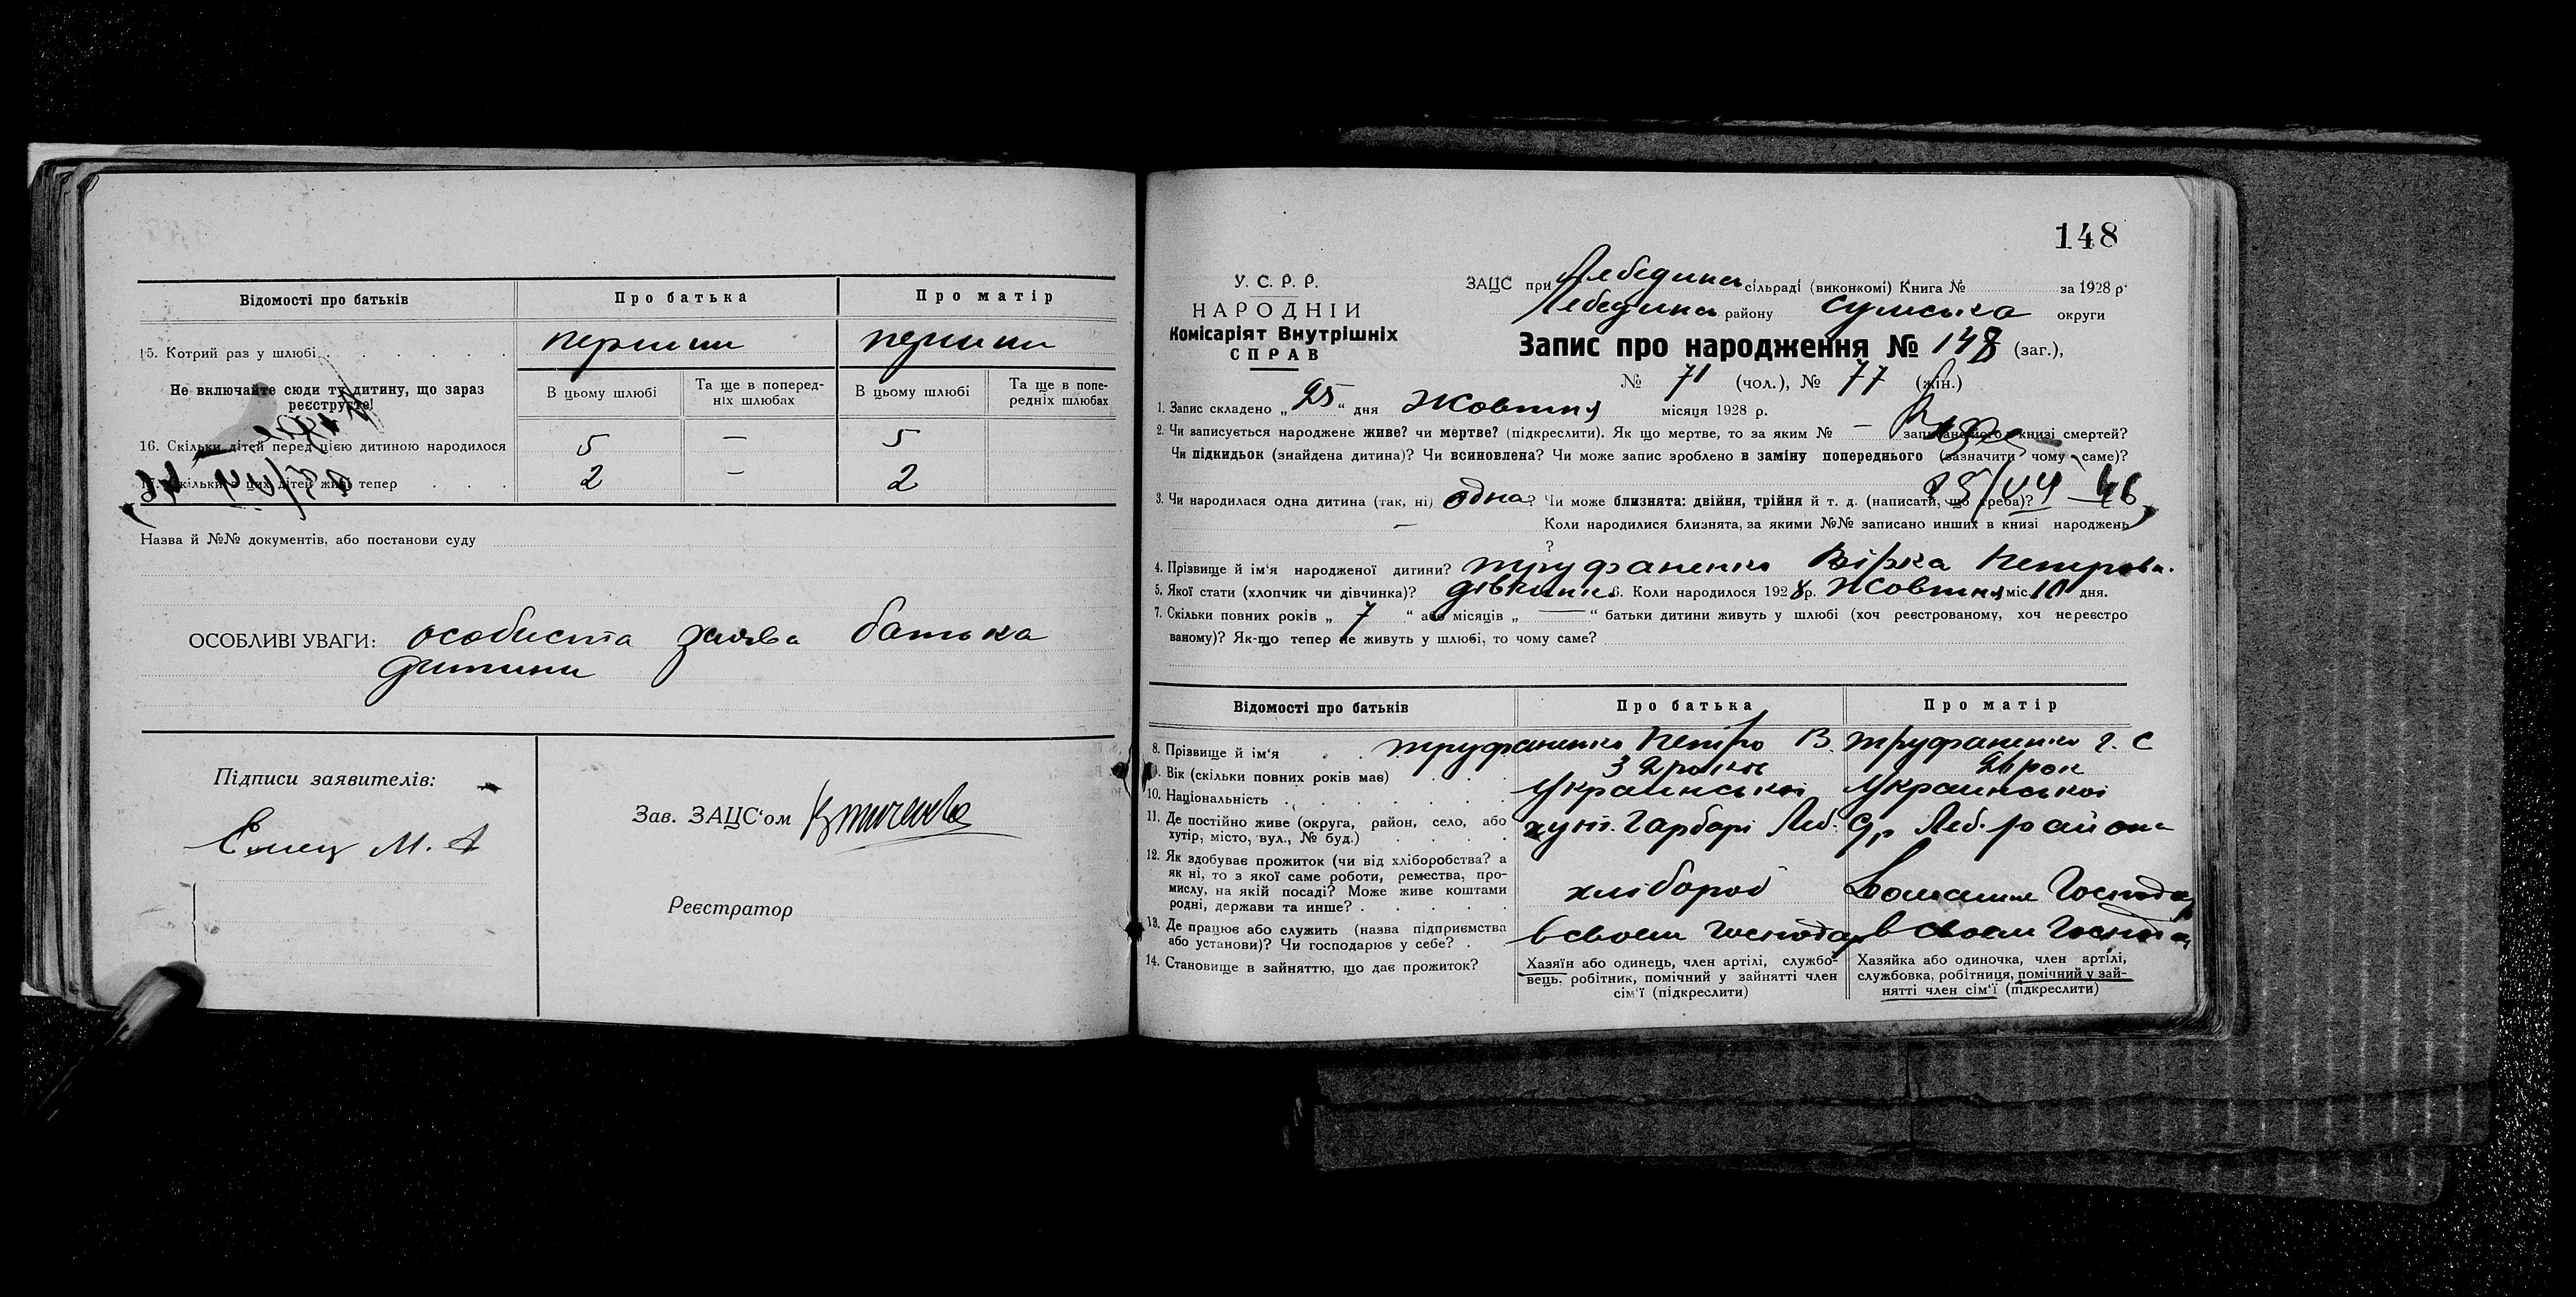 Відомості про батьків
Про батька
Про матір
15. Котрий раз у шлюбі
перший
перший
Не включайте сюди ту дитину, що зараз реєструєте!
В цьому шлюбі
Та ще в поперед-
ніх шлюбах
В цьому шлюбі
Та ще в попе-
редніх шлюбах
16. Скільки дітей перед цією дитиною народилося
5
—
5
17. Скільки з цих дітей живі тепер
2
—
2
Назва й №№ документів, або постанови суду
ОСОБЛИВІ УВАГИ: особиста заява батька
дитини
Підписи заявителів:
Зав. ЗАЦС'ом
Реєстратор
148
У. С. Р. Р.
НАРОДНІЙ
Комісаріят Внутрішніх
СПРАВ
ЗАЦС при Лебединсь сільраді (виконкомі) Книга № за 1928 р.
Лебединсь району Сумська округи
Запис про народження № 148 (заг.),
№ 71 (чол.), № 77 (жін.)
1. Запис складено „25“ дня Жовтня місяця 1928 р.
2. Чи записується народжене живе? чи мертве? (підкреслити). Як що мертве, то за яким № — записане його в книзі смертей?
Чи підкидьок (знайдена дитина)? Чи всиновлена? Чи може запис зроблено в заміну попереднього (зазначити чому саме)?
3. Чи народилася одна дитина (так, ні) одна? Чи може близнята: двійня, трійня й т. д. (написати, що треба)?
— Коли народилися близнята, за якими №№ записано инших в книзі народжень
?
4. Прізвище й ім'я народженої дитини? Труфаненко Вірка Петрова.
5. Якої стати (хлопчик чи дівчинка)? дівчинка 6. Коли народилося 1928 р. Жовтня міс. 10 дня.
7. Скільки повних років „7“ або місяців „—“ батьки дитини живуть у шлюбі (хоч реєстрованому, хоч нереєстро
ваному)? Як-що тепер не живуть у шлюбі, то чому саме?
Відомості про батьків
Про батька
Про матір
8. Прізвище й ім'я
Труфаненко Петро В.
Труфаненко Г. С
9. Вік (скільки повних років має)
32 років
рок
10. Національність
Української
Української
11. Де постійно живе (округа, район, село, або
хутір, місто, вул., № буд.)
хут. Гарбарі Леб.
Леб. района
12. Як здобуває прожиток (чи від хліборобства? а
як ні, то з якої саме роботи, ремества, про-
мислу, на якій посаді? Може живе коштами
родні, держави та инше?
хлібороб
Домашне Господар
13. Де працює або служить (назва підприємства
або установи)? Чи господарює у себе?
в своем господар
в своем Господар
14. Становище в зайняттю, що дає прожиток?
Хазяїн або одинець, член артілі, службо-
вець, робітник, помічний у зайнятті член
сім'ї (підкреслити)
Хазяйка або одиночка, член артілі,
службовка, робітниця, помічний у зай-
нятті член сім'ї (підкреслити)